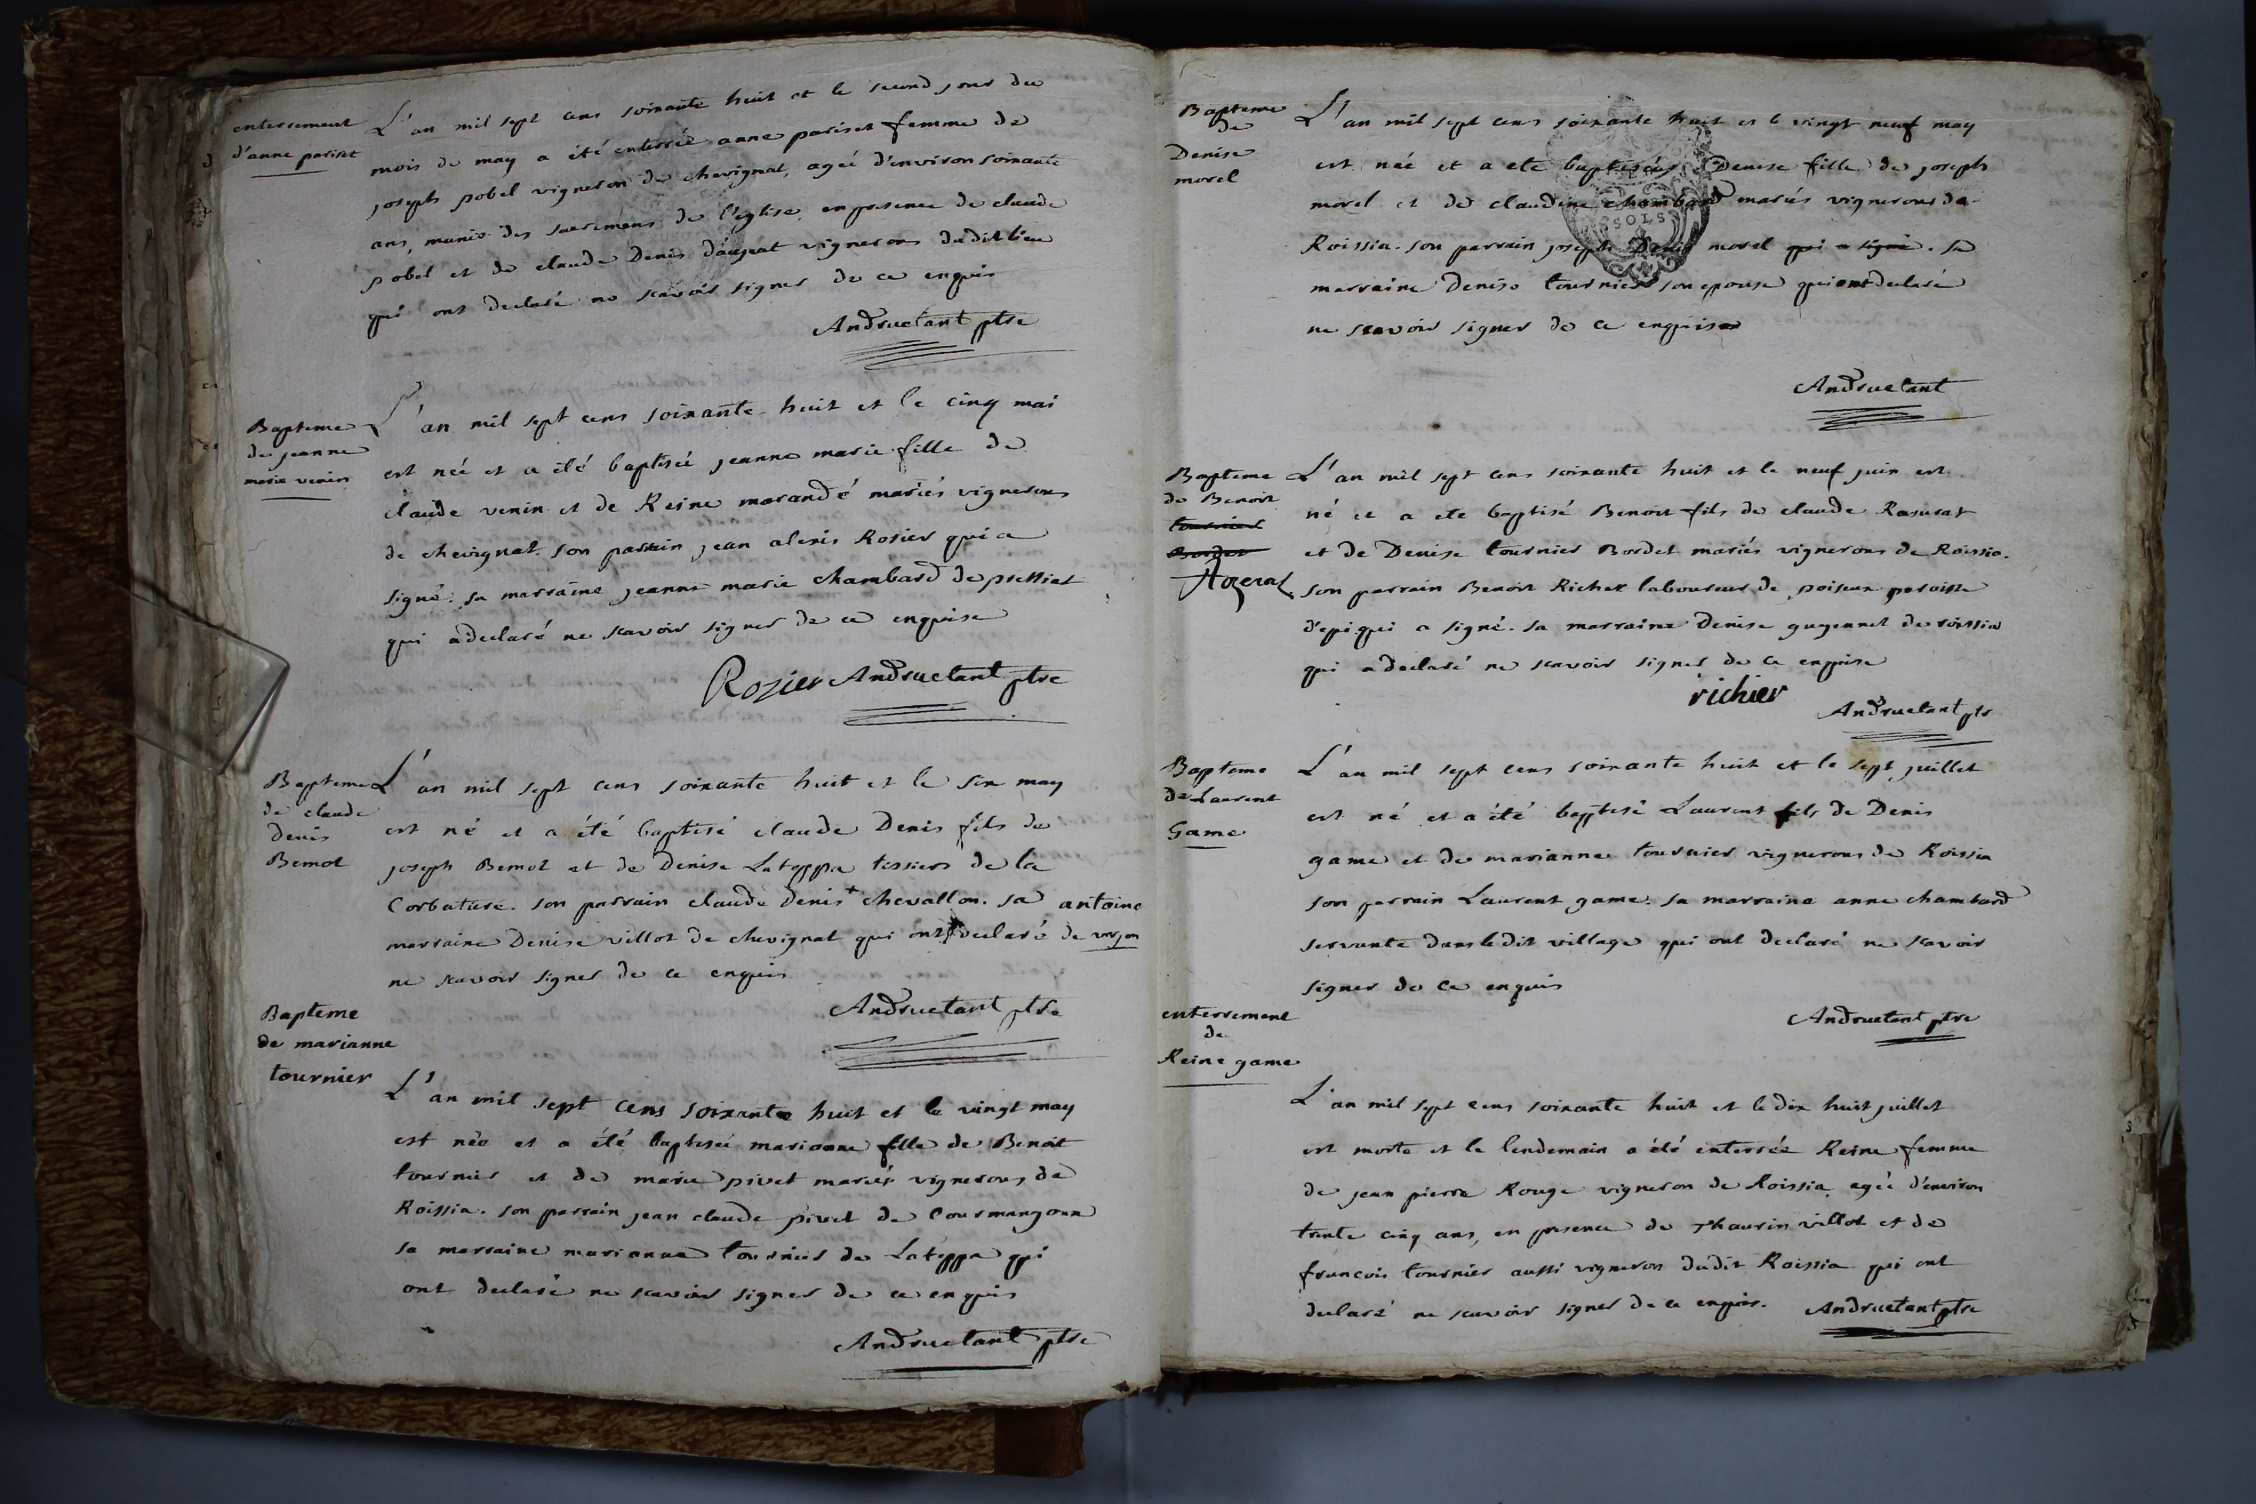 enterrement
d'anne pariset
L'an mil sept cens soixante huit et le second jour du
mois de may a été enterrée anne pariset femme de
joseph pobel vigneron de chevignat, agée d'environ soixante
ans, munie des sacremens de l'église, en presence de claude
pobel et de claude Denis daujat vignerons dudit lieu
qui ont declaré ne scavoir signer de ce enquis
Andruetant ptre
Bapteme
de jeanne
marie venin
L'an mil sept cens soixante huit et le cinq mai
est née et a été baptisée jeanne marie fille de
claude venin et de Reine morandé mariés vignerons
de chevignat. son parrain jean alexis Rosier qui a
signé. sa marraine jeanne marie chambard de pressiat
qui a declaré ne scavoir signer de ce enquise
Rozier Andruetant ptre
Bapteme
de claude
Denis
Bemol
L'an mil sept cens soixante huit et le six may
est né et a été baptisé claude Denis fils de
joseph Bemol et de Denise Lateppa tessiers de la
Corbature. son parrain claude Denis + chevallon. sa antoine
marraine Denise villot de chevignat qui ont declaré de verjon
ne scavoir signer de ce enquis
Andruetant ptre
Bapteme
de marianne
tournier
L'an mil sept cens soixante huit et le vingt may
est née et a été baptisée marianne fille de Benoit
tournier et de marie pivet mariés vignerons de
Roissia. son parrain jean claude pivet de Courmangoux
sa marraine marianne tournier de Lateppa qui
ont declaré ne scavoir signer de ce enquis
Andruetant ptre
Bapteme
de
Denise
morel
L'an mil sept cens soixante huit et le vingt neuf may
est née et a ete baptisée Denise fille de joseph
morel et de claudine chambard mariés vignerons de
Roissia. son parrain joseph Denis morel qui a signé. sa
marraine Denise tournier son epouse qui ont declaré
ne scavoir signer de ce enquis
Andruetant
SOLS
Bapteme
de Benoit
tournier
Bordet
L'an mil sept cens soixante huit et le neuf juin est
né et a ete baptisé Benoit fils de claude Rasurat
et de Denise tournier Bordet mariés vignerons de Roissia.
son parrain Benoit Richer laboureur de poiseux paroisse
d'epi qui a signé. sa marraine Denise guyennet de roissia
qui a declaré ne scavoir signer de ce enquise
richier
Andruetant ptr
Bapteme
de Laurent
Game
L'an mil sept cens soixante huit et le sept juillet
est né et a été baptisé Laurent fils de Denis
game et de marianne tournier vignerons de Roissia
son parrain Laurent game. sa marraine anne chambard
servante dans ledit village qui ont declaré ne scavoir
signer de ce enquis
Andruetant ptre
enterrement
de
Reine game
L'an mil sept cens soixante huit et le dix huit juillet
est morte et le lendemain a été enterrée Reine femme
de jean pierre Rouge vigneron de Roissia, agée d'environ
trente cinq ans, en presence de Thaurin villot et de
françois tournier aussi vigneron dudit Roissia qui ont
declaré ne scavoir signer de ce enquis. Andruetant ptre